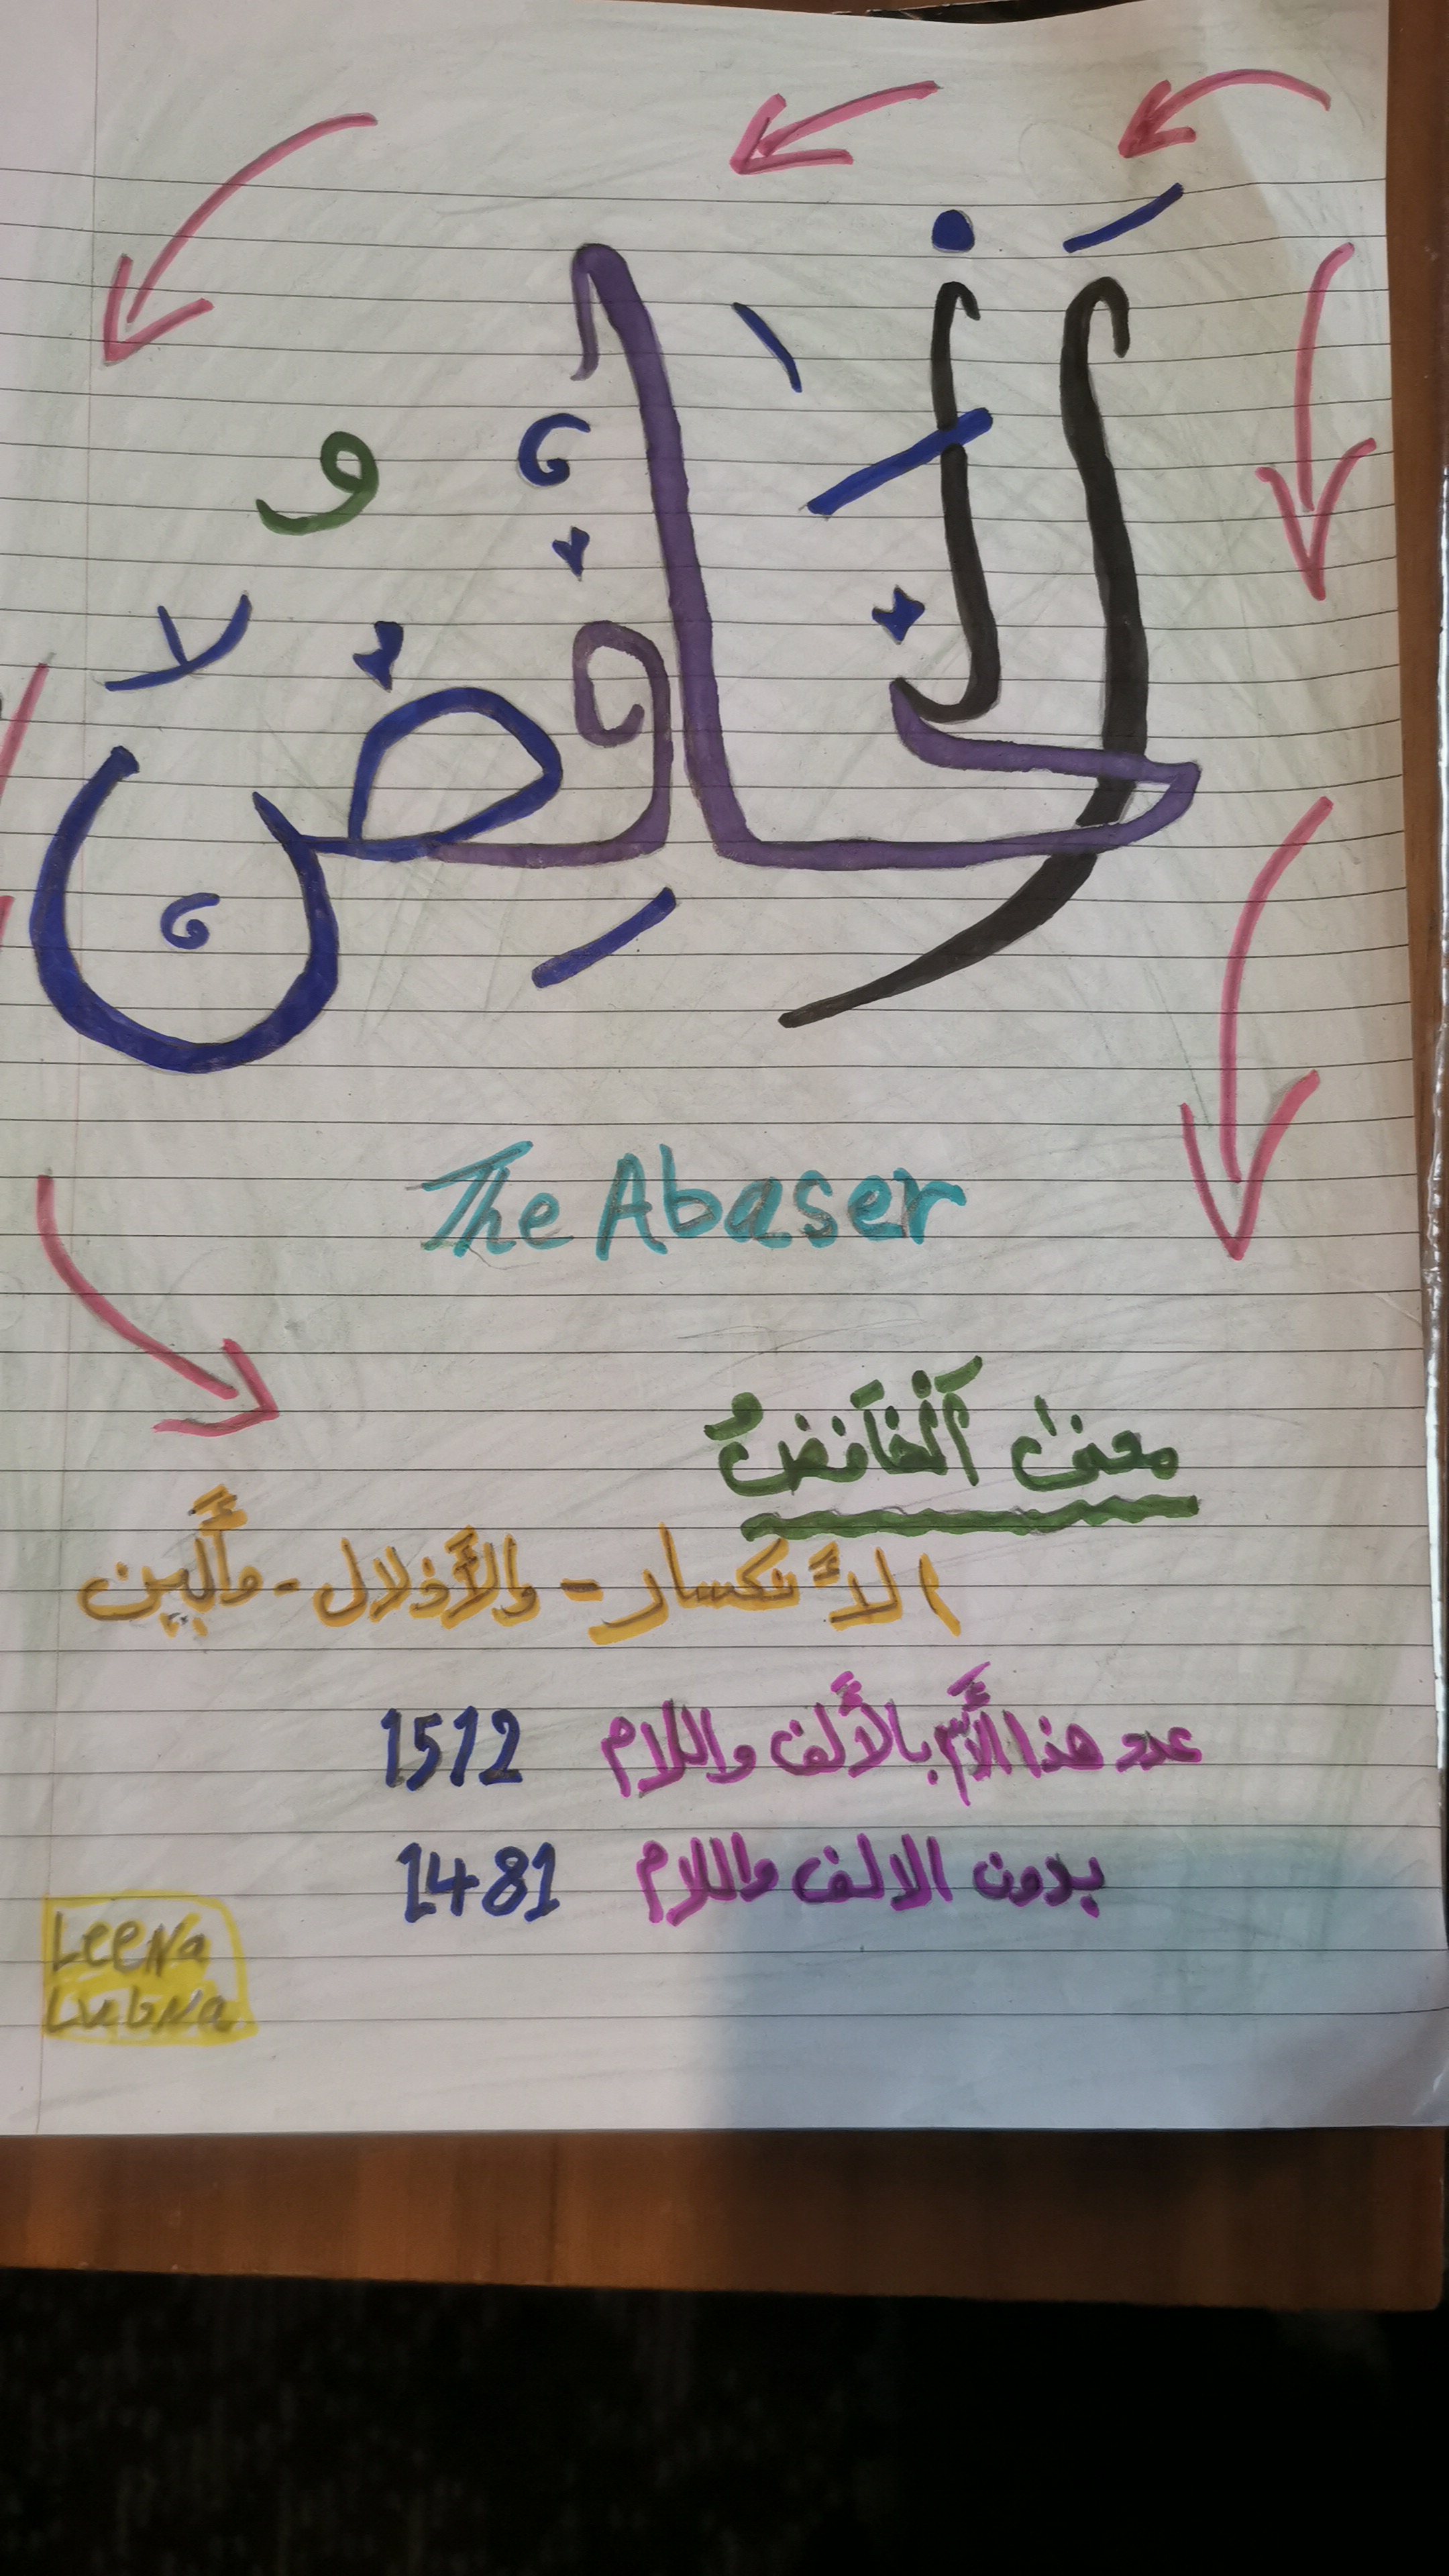 اَلْخَافِضُ
The Abaser
معنىٰ اَلْخَافِضُ
الأنكسار - والأذلال - وألَّين
عدد هذا الأَسم بالأَلف واللام 1512
بدون الالف واللام 1481
LeeNa
LubNa